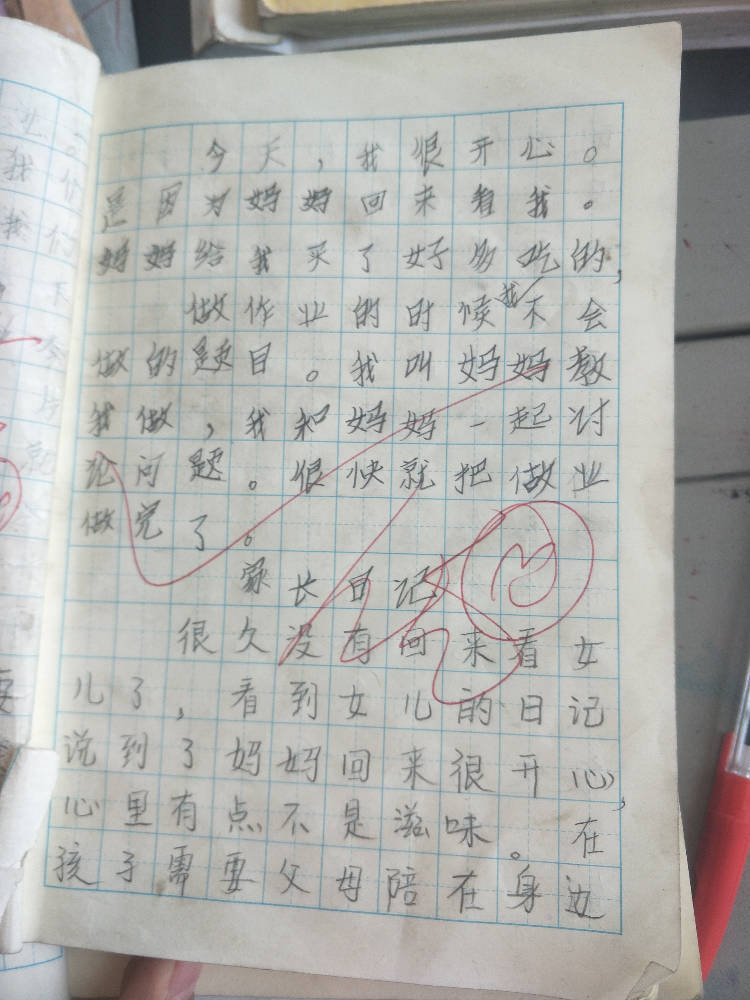 今天，我很开心。
是因为妈妈回来看我。
妈妈给我买了好多吃的，
做作业的时候我不会
做的题目。我叫妈妈教
我做，我和妈妈一起讨
论问题。很快就把做业
做完了。
家长日记
很久没有回来看女
儿了，看到女儿的日记
说到了妈妈回来很开心，
心里有点不是滋味。在
孩子需要父母陪在身边